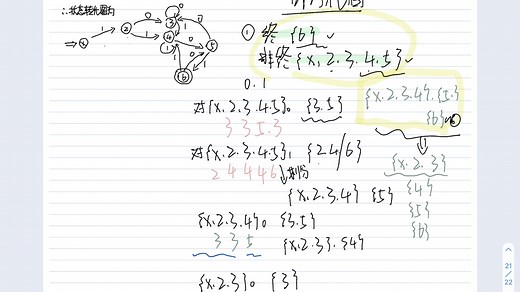 ∴状态转化图为
① 终 {6}
非终 {x,2.3.4.5}
0.1
对{x.2.3.4.5}₀ {3.5}
3 3 5.3
对{x.2.3.4.5}, {24/6}
2 4 4 4 6 ↓划分
{x,2.3.4} {5}
{x.2.3.4}₀ {3.5}
3 3 5 {x.2.3}.{4}
{x.2.3}₀ {3}
{x.2.3.4}.{5.}
{6}
{x.2.3}
{4}
{5}
{6}
21
/
22